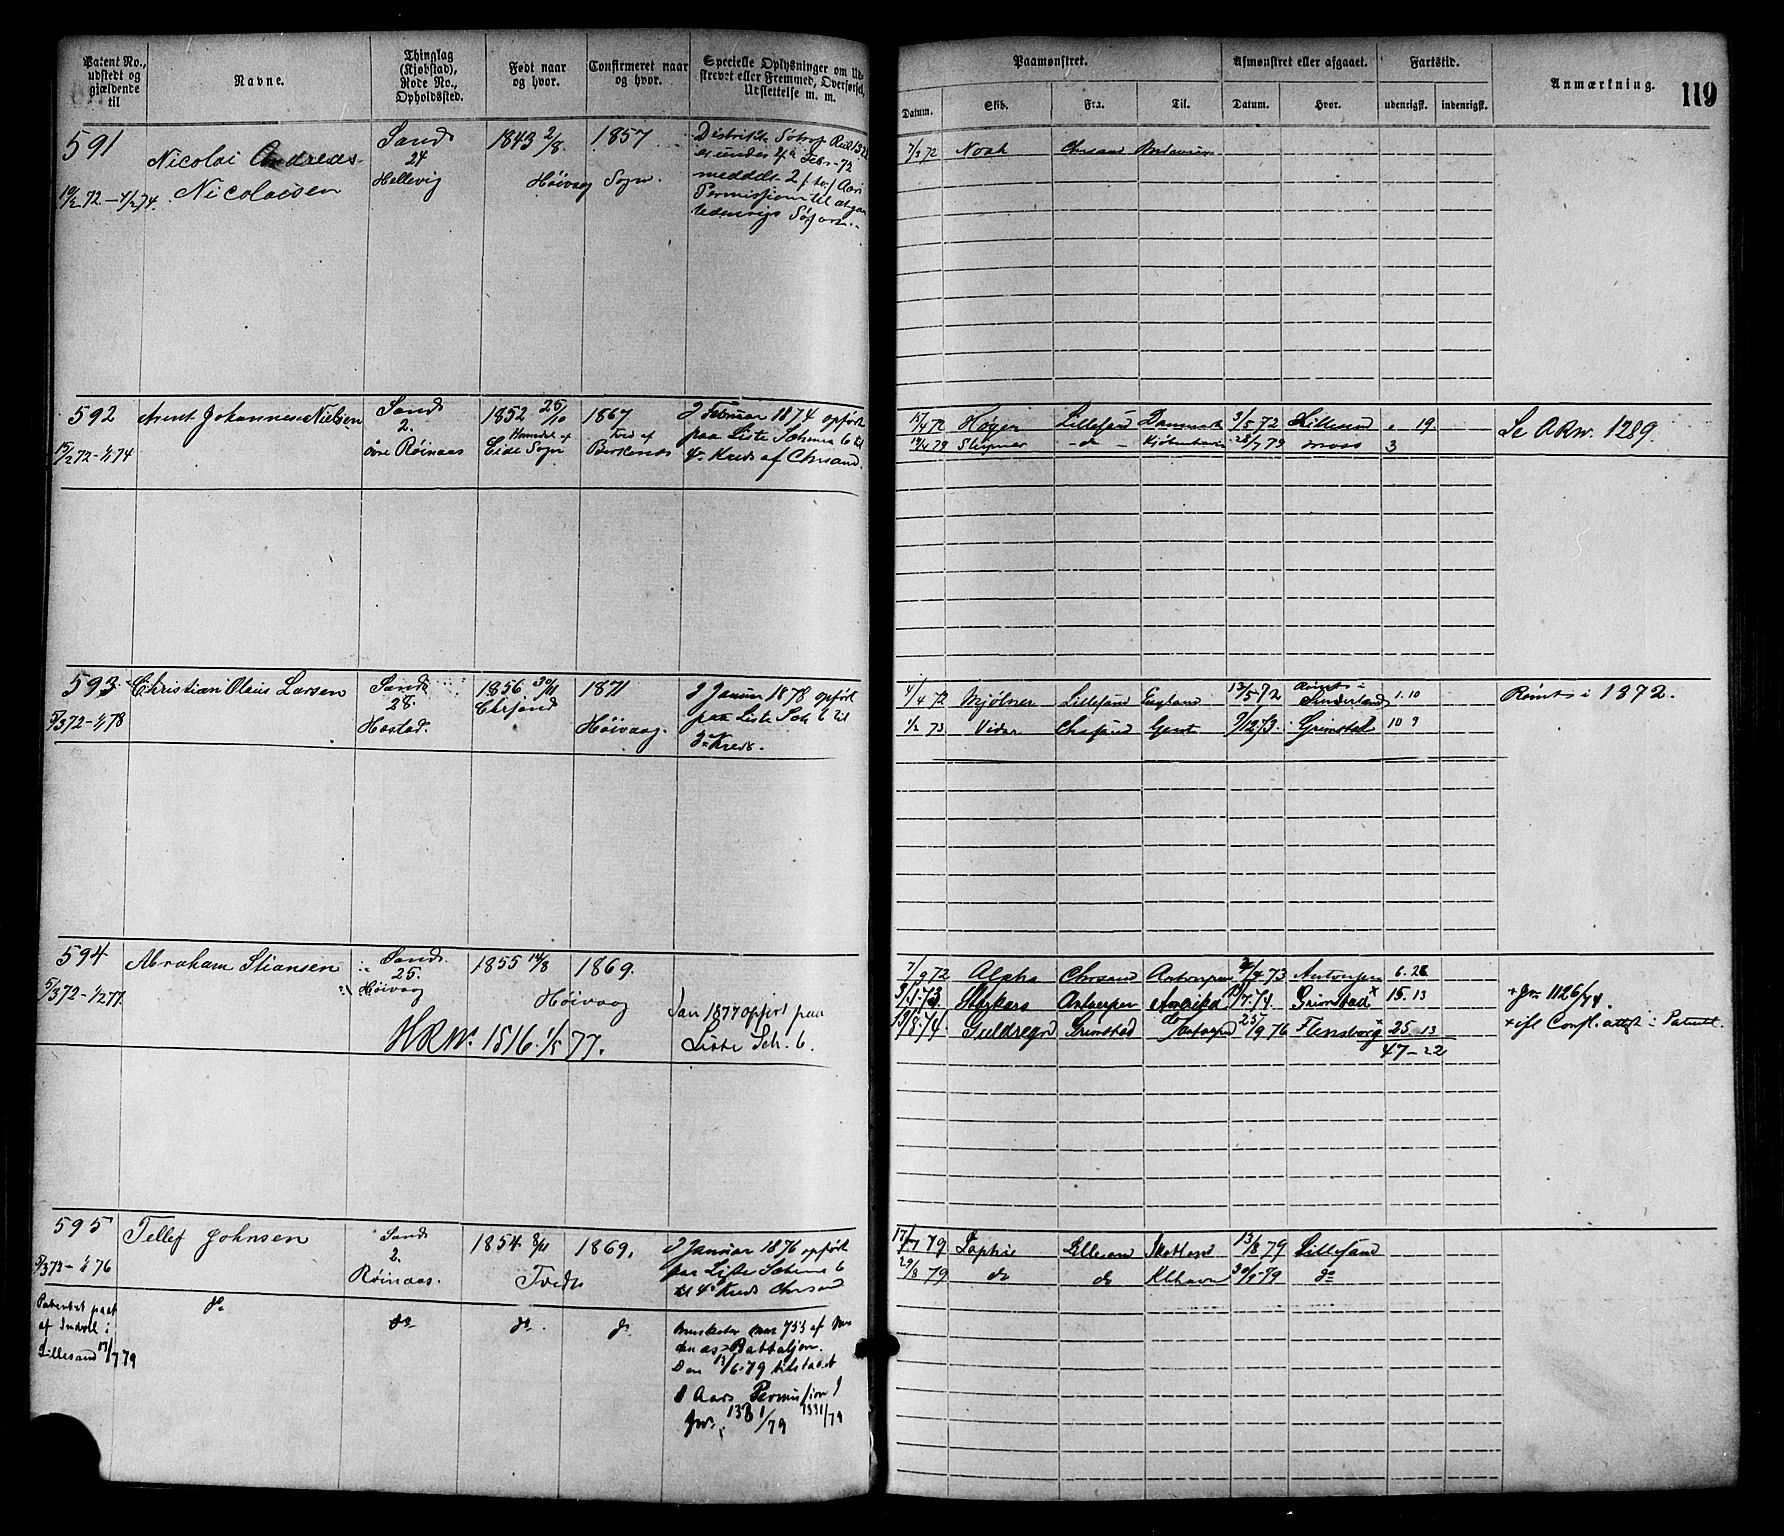 Patent No., udstedt og gjældende til
Navne.
Thinglag (Kjøbstad), Rode No., Opholdssted.
Født naar og hvor.
Confirmeret naar og hvor.
Specielle Oplysninger om Udskrevet eller Fremmed, Overførsel, Udslettelse m. m.
Paamønstret.
Afmønstret eller afgaaet.
Fartstid.
Anmærkning.
119
Datum.
Skib.
Fra.
Til.
Datum.
Hvor.
udenrigsk.
indenrigsk.
591
Nicolai Andreas
Nicolaisen
Sand
24
Hellevig
1843 2/8
1857
Høivaag Sogn.
19/2 72 - 4/2 74.
meddelt 2
Permission til at gaa
Udenrigs
7/3 72 Noah
592
Arent Johannes Nielsen
Sand
2.
øvre Røinaas
1852 25/10
Eide Sogn
1867
Tved af
Birkenæs
2 Februar 1874 opført
paa Liste Schema 6 til
4de Kreds af Chrsand.
19/2 72 - 1/1 74
17/4 72 Høger Lillesand Danmark 3/5 72 Lillesand 19
19/4 79 - do - 28/7 79 Moss 3
Se ARW. 1289.
593
Christian Olaus Larsen
Sand
28.
Hæstad.
1856 30/11
Chrsand
1871
Høivaag.
2 Januar 1878 opført
paa Liste Sch 6 til
3die Kreds.
5/3 72 - 1/1 78
4/4 72 Mjølner Lillesand England 13/5 72 Rømt i Sunderland 1.10
1/2 73 Vidar Chrsand Gent 9/12 73. Grimstad 10 9
Rømt i 1872.
594
Abraham Stiansen
Sand.
25.
Høivaag
1855 14/8
1869.
Høivaag
5/3 72 - 1/2 77.
HRW. 1516 1/5 77.
Jan 1877 opført paa
Liste Sch. 6.
7/9 72 Alpha Chrsand Antwerpen 73 Antwerpen 6.28
Starkars Antwerpen Amerika 74. Grimstad 15.13
19/8 74. Grimstad 25/9 76 Flensborg 25 13
47-22
+Jr 1126/74.
595
Tellef Johnsen
Sand
2.
Røinaas.
1854 8/11
1869.
Tveds
2 Januar 1876 opført
paa Liste Schema 6
til 4de Kreds Chrsand
5/3 72 - 1/1 76
17/7 79 Sophie Lillesand Skotland 13/8 79 Lillesand
29/8 79 do do 30/9 79 do
Patentet
af Indrul i
Lillesand 17/7 79
do
do
do
do
753 af
Battaljon.
Den 13/6 79 tilstaaet
Aars Permission
Jr. 1331/79